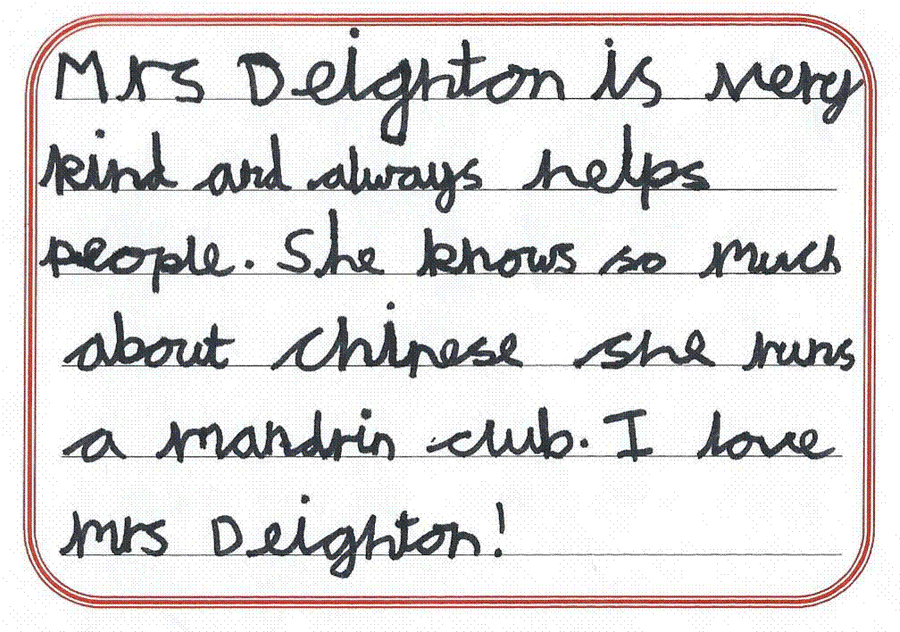 Mrs Deighton is very
kind and always helps
people. She knows so much
about chinese she runs
a mandrin club. I love
mrs Deighton!